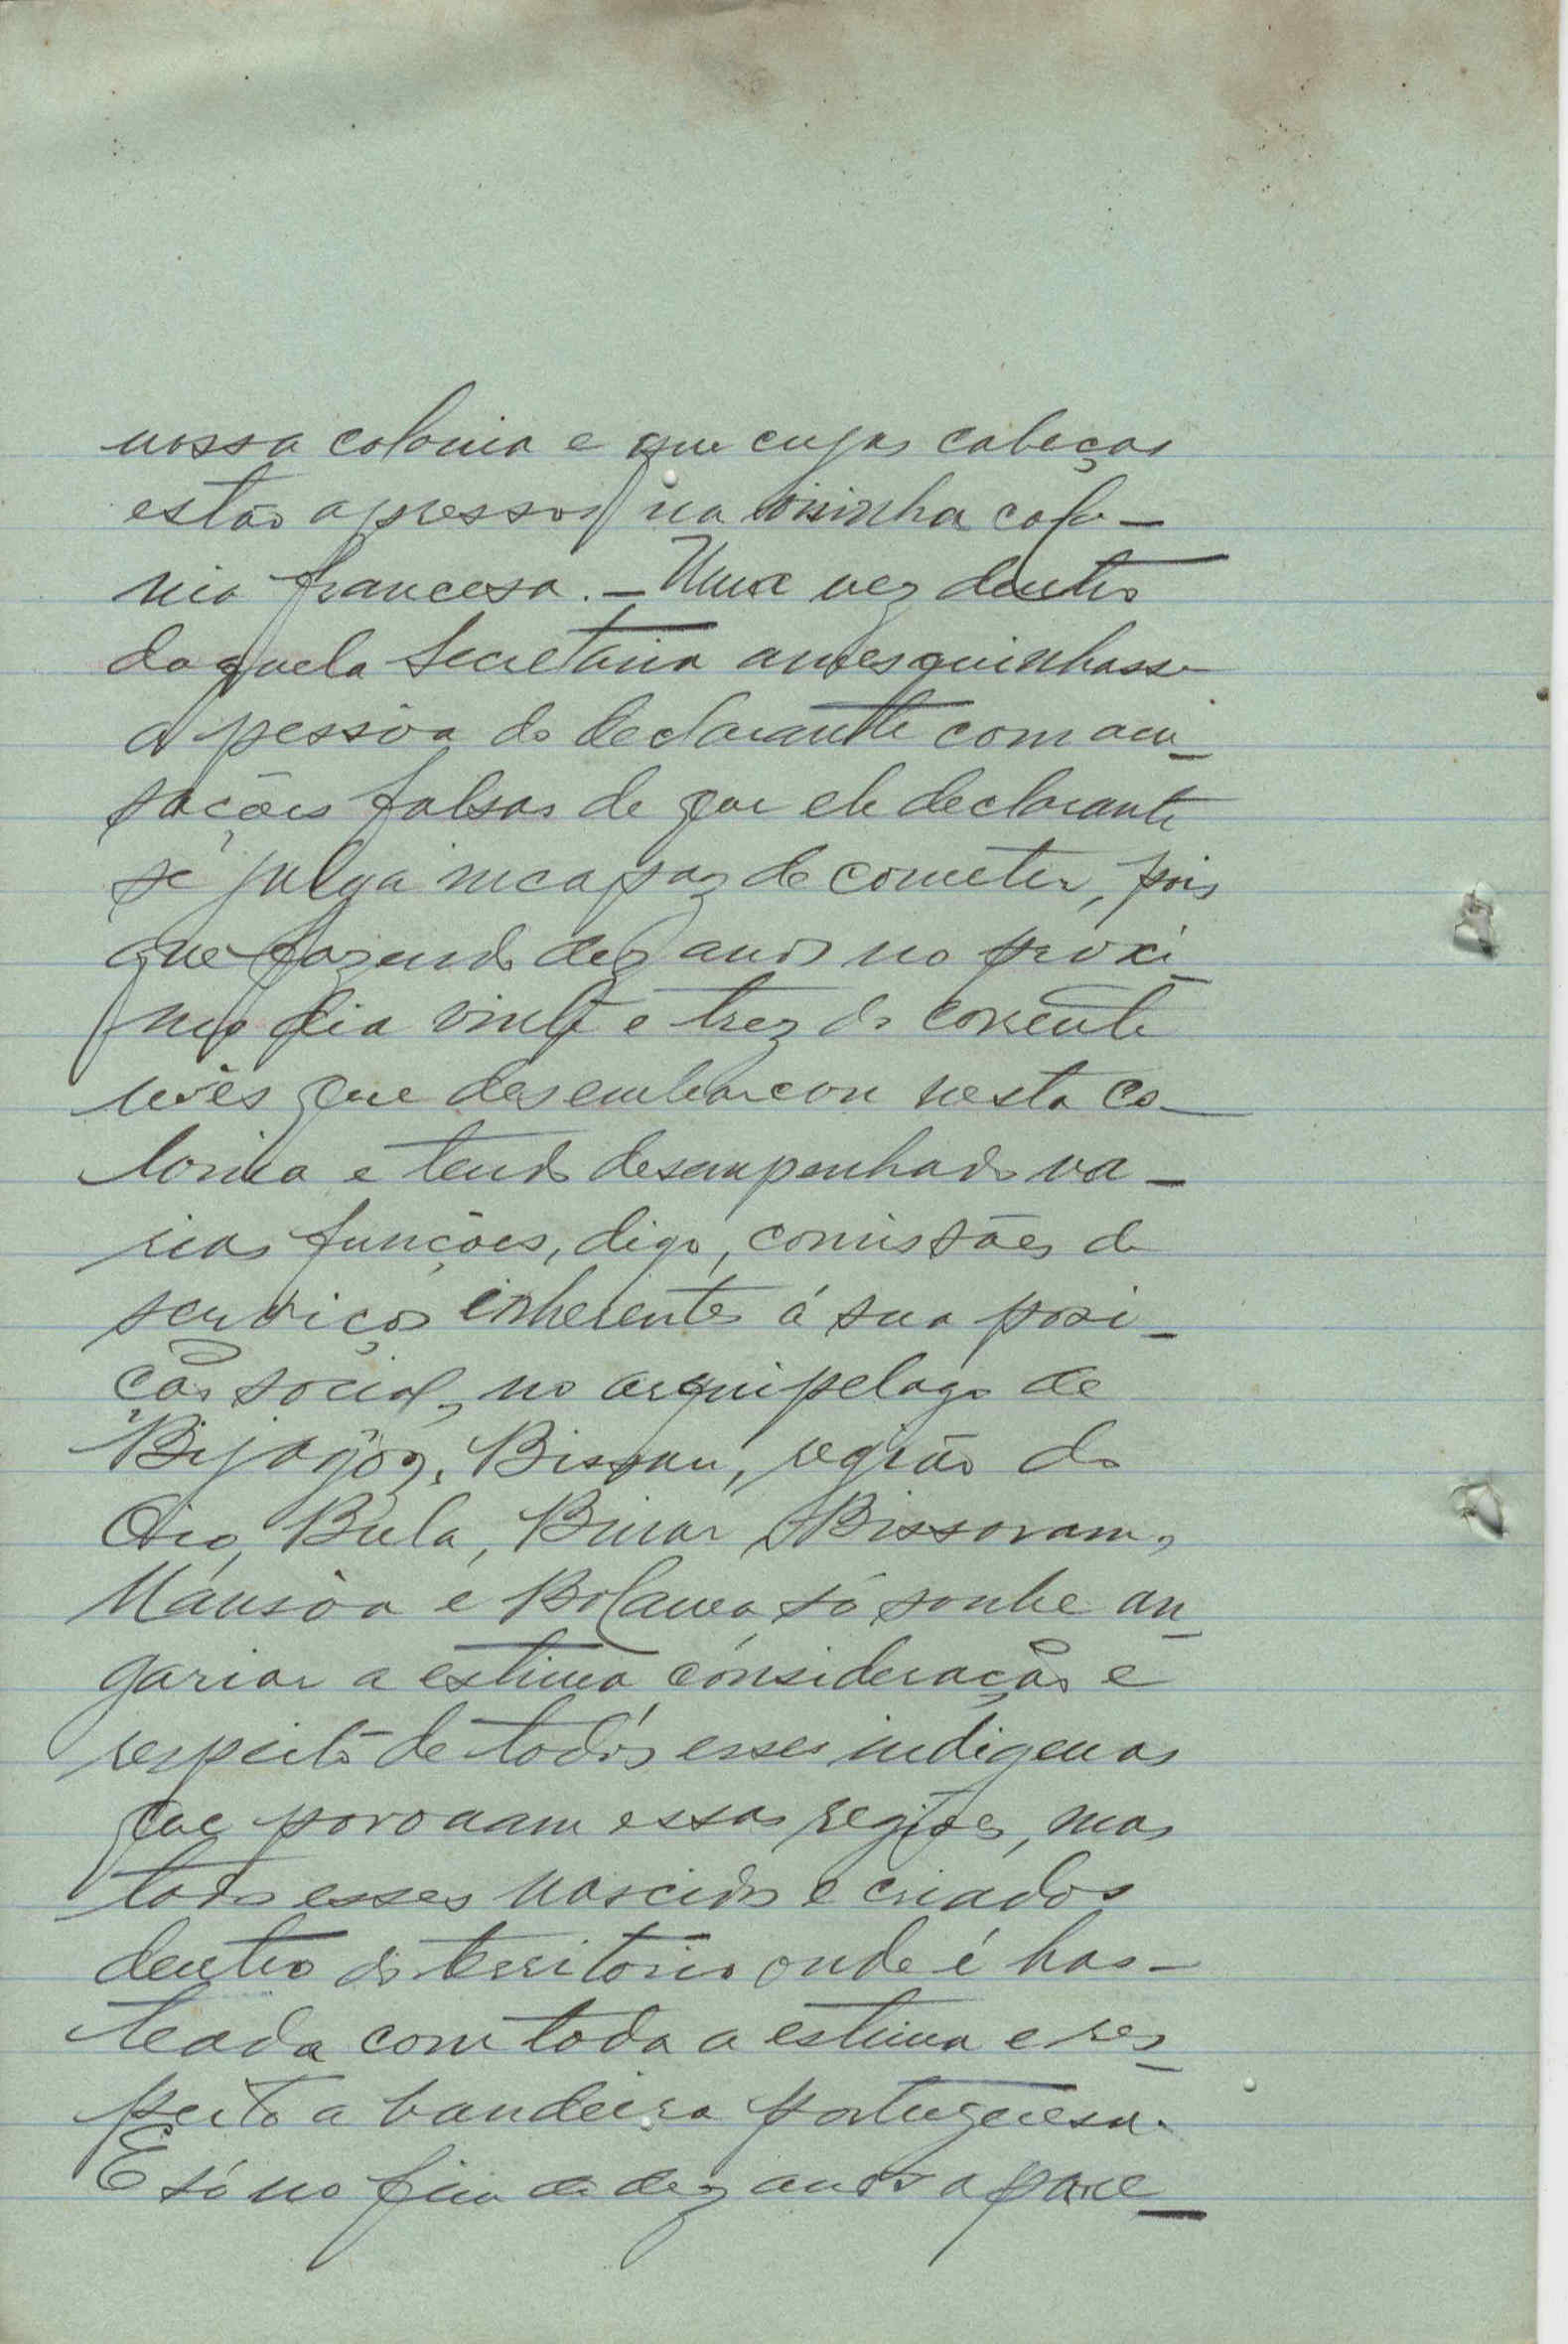 nossa colonia e que cujas cabeças
estão apressos na visinha colo-
nia francesa. - Uma vez dentro
daquela Secretaria amesquinhasse
a pessôa do declarante com acu-
sações falsas de que ele declarante
se julga incapaz de cometer, pois
que fazendo dez anos no proxi-
mo dia vinte e trez do corrente
mês que desembarcou nesta co-
lonia e tendo desempenhado va-
rias funções, digo, comissões de
serviços inherentes á sua posi-
ção social, no arquipelago de
Bijagoz, Bissau, região do
Oio, Bula, Binar, Bissoram,
Mansôa e só soube an-
gariar a estima consideração e
respeito de todos esses indigenas
que povoaam essas regiões, mas
todos esses nascidos e criados
dentro do territorio onde é has-
teada com toda a estima e res-
peito a bandeira portuguesa.
E só no fim de dez anos apare-